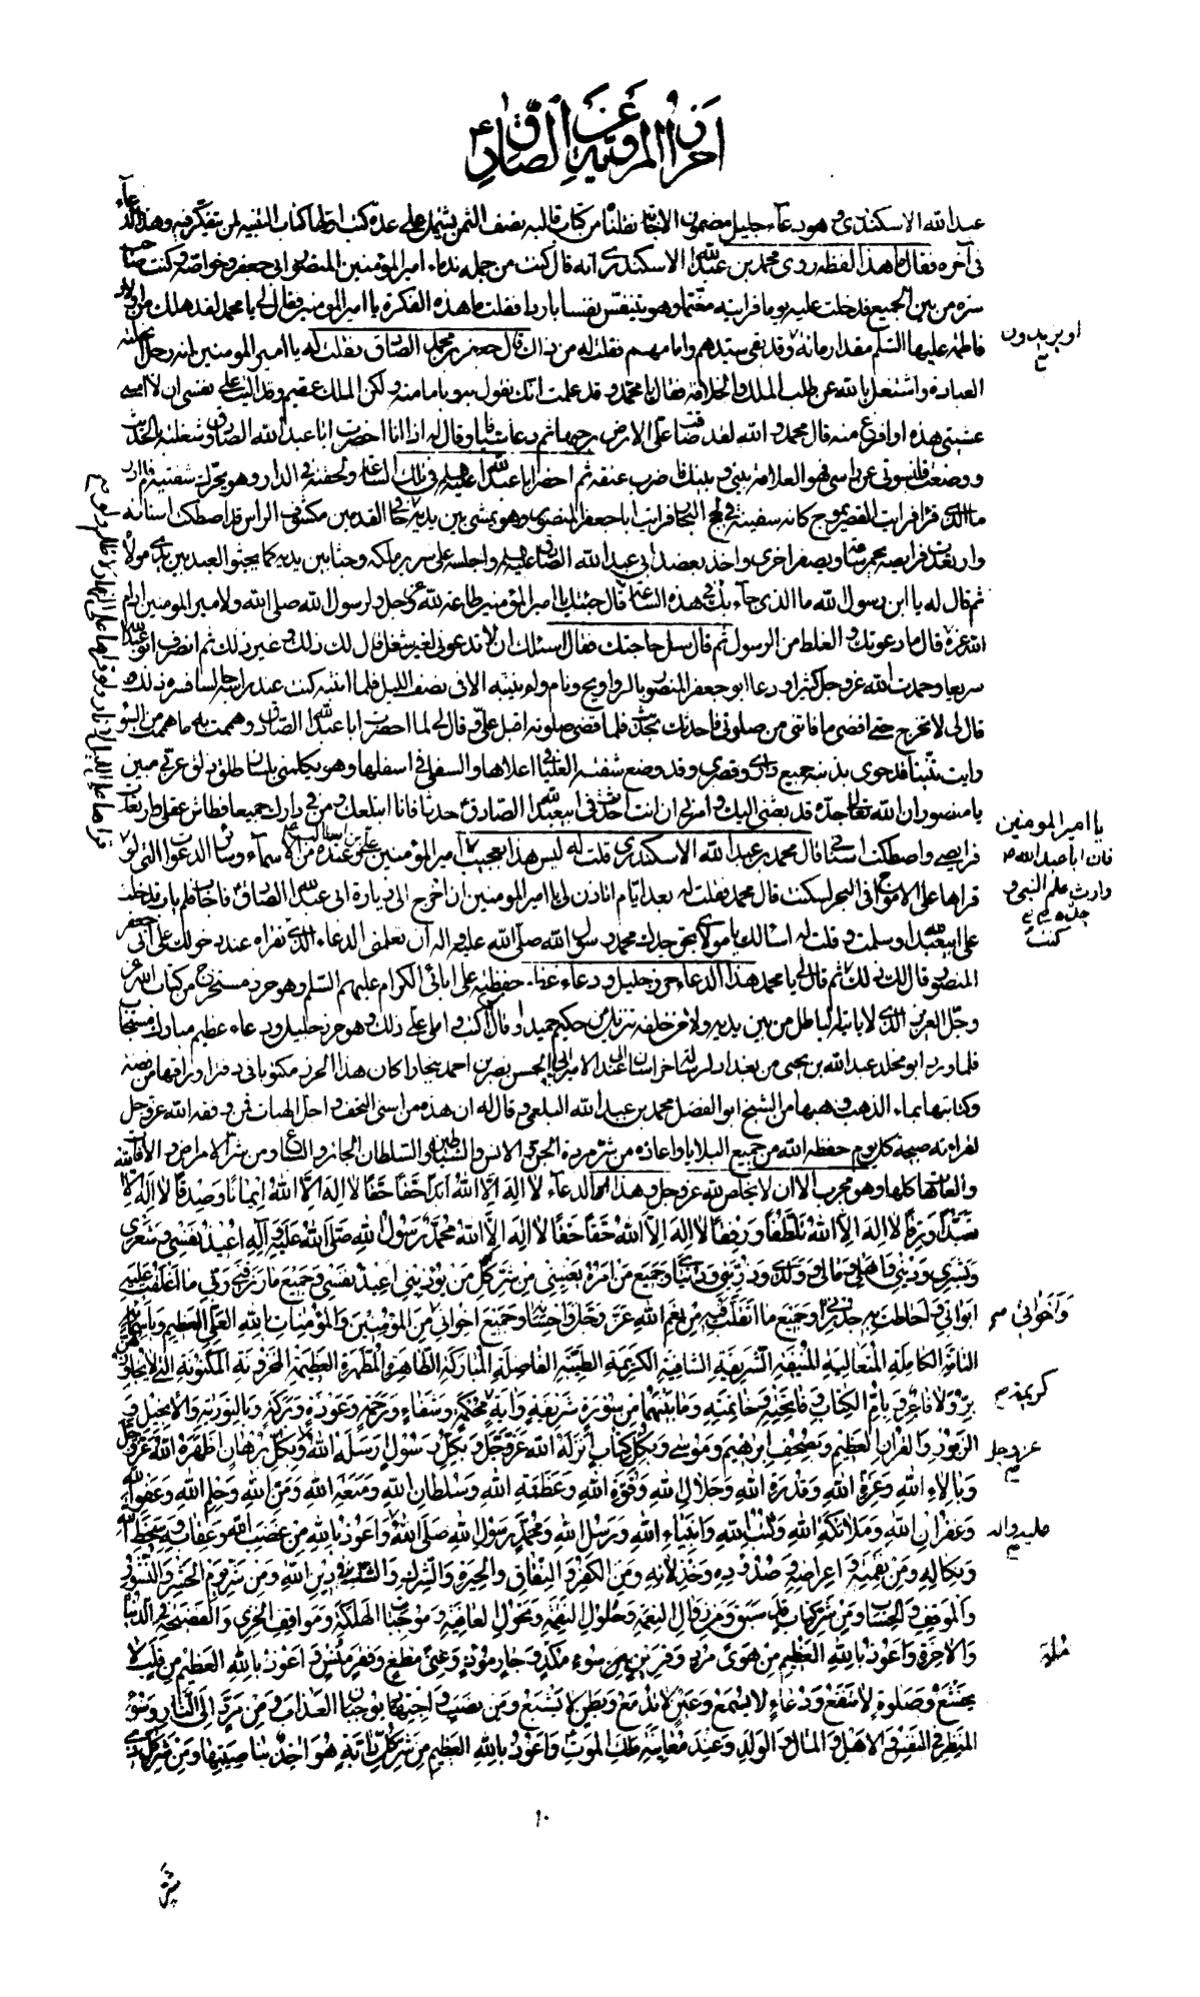 احراز المروية عن الصادق ع
عبد الله الاسكندري وهو دعآء جليل مضمون الاجابة نقلناه من كتاب قالبه نصف الثمن يشتمل على عدة كتب اولها كتاب التنبيه لمن يتفكر فيه وهذا الدعآء
في آخره فقال ما هذا لفظه روى محمد بن عبد الله الاسكندري انه قال كنت من جملة ندماء امير المؤمنين المنصور ابي جعفر وخواصه وكنت صاحب
سره من بين الجميع فدخلت عليه يوما فرايته مغتما وهو يتنفس نفسا باردا فقلت ما هذه الفكرة يا امير المومنين فقال لي يا محمد لقد هلك من اولاد
فاطمة عليها السلم مقدار مائة وقد بقى سيدهم وامامهم فقلت له من ذاك قال جعفر بن محمد الصادق فقلت له يا امير المومنين انه رجل انحلته
العبادة واشتغل بالله عن طلب الملك والخلافة فقال يا محمد وقد علمت انك تقول به وبامامته ولكن الملك عقيم وقد اليت على نفسي ان لا امسي
عشيتي هذه او افرغ منه قال محمد والله لقد ضاقت على الارض برحبها ثم دعا سيافا وقال له اذا انا احضرت ابا عبد الله الصادق وشغلته بالحديث
ووضعت قلنسوتي عن راسي فهو العلامة بيني وبينك فاضرب عنقه ثم احضر ابا عبد الله عليه السلم في تلك الساعة ولحقته في الدار وهو يحرك شفتيه فلم ادر
ما الذي قرا فرايت القصر يموج كانه سفينة في لجج البحار فرايت ابا جعفر المنصور وهو يمشي بين يديه حافي القدمين مكشوف الراس قد اصطكت اسنانه
وارتعدت فرايصه يحمر ساعة ويصفر اخرى واخذ بعضد ابي عبد الله الصادق عليه السلم واجلسه على سرير ملكه وجثا بين يديه كما يجثو العبد بين يدي مولاه
ثم قال له يا ابن رسول الله ما الذي جآء بك في هذه الساعة قال جئتك يا امير المؤمنين طاعة لله عز وجل ولرسول الله صلى الله ولامير المومنين ادام
الله عزه قال ما دعوتك والغلط من الرسول ثم قال سل حاجتك فقال اسئلك ان لا تدعوني لغير شغل قال لك ذلك وغير ذلك ثم انصرف ابو عبد الله
سريعا وحمدت الله عز وجل كثيرا ودعا ابو جعفر المنصور بالدواويج ونام ولم ينتبه الا في نصف الليل فلما انتبه كنت عند راسه جالسا فسره ذلك و
قال لي لا تخرج حتى اقضي ما فاتني من صلوتي فاحدثك بحديث فلما قضى صلوته اقبل علي وقال لي لما احضرت ابا عبد الله الصادق وهممت به ما هممت من السوء
رايت تنينا قد حوى بذنبه جميع داري وقصري وقد وضع شفته العليا في اعلاها والسفلى في اسفلها وهو يكلمني بلسان طلق ذلق عربي مبين
يا منصور ان الله تعالى جده قد بعثني اليك وامرني ان انت احدثت في ابي عبد الله الصادق حدثا فانا ابتلعك ومن في دارك جميعا فطاش عقلي وارتعدت
فرايصي واصطكت اسناني قال محمد بن عبد الله الاسكندري قلت له ليس هذا بعجيب يا امير المؤمنين وعنده من الاسماء وسائر الدعوات التي لو
قراها على الامواج في البحر لسكنت قال محمد فقلت له بعد ايام اتاذن لي يا امير المومنين ان اخرج الى زيارة ابي عبد الله الصادق فاجاب فلم ياب فدخلت
على ابي عبد الله وسلمت وقلت له اسئالك يا مولاي بحق جدك محمد رسول الله صلى الله عليه واله ان تعلمني الدعاء الذي تقراه عند دخولك على ابي جعفر
المنصور قال لك ذلك ثم قال لي يا محمد هذا الدعاء حرز جليل ودعاء عظيم حفظته على ابائي الكرام عليهم السلم وهو حرز مستخرج من كتاب الله عز
وجل العزيز الذي لا ياتيه الباطل من بين يديه ولا من خلفه تنزيل من حكيم حميد وقال اكتب واملى على ذلك وهو حرز جليل ودعاء عظيم مبارك مستجاب
فلما ورد ابو مخلد عبد الله بن يحيى من بغداد لرسالة خراسان الى عند الامير ابي الحسن نصر بن احمد ببخارا كان هذا الحرز مكتوبا في دفتر اوراقها من فضة
وكتابتها بماء الذهب وهبها من الشيخ ابو الفضل محمد بن عبد الله البلعمي وقال له ان هذه من اسنى التحف واجل الهبات فمن وفقه الله عز وجل
لقراءته صبيحة كل يوم حفظه الله من جميع البلايا واعاذه من شر مردة الجن والانس والشياطين والسلطان الجائر والسباع ومن شر الامراض والافات
والعاهات كلها وهو مجرب الا ان لا يخلص لله عز وجل وهذا اول الدعآء لا اله الا الله ابدا حقا حقا لا اله الا الله ايمانا وصدقا لا اله الا الله
تعبدا ورقا لا اله الا الله تلطفا ورفقا لا اله الا الله حقا حقا لا اله الا الله محمد رسول الله صلى الله عليه وآله اعيذ نفسي وشعري
وبشري وديني واهلي ومالي وولدي وذريتي ودنياي وجميع من امره يعنيني من شر كل من يؤذيني اعيذ نفسي وجميع ما رزقني ربي وما اغلقت عليه
ابوابي واحاطت به جدراني وجميع ما اتقلب فيه من نعم الله عز وجل واحسانه وجميع اخواني من المؤمنين والمؤمنات بالله العلي العظيم وباسمائه
التامة الكاملة المتعالية المنيفة الشريفة الشافية الكريمة الطيبة الفاضلة المباركة الطاهرة المطهرة العظيمة المخزونة المكنونة التي لا يجاوزهن
بر ولا فاجر وبام الكتاب وفاتحته وخاتمته وما بينهما من سورة شريفة واية محكمة وشفاء ورحمة وعوذة وبركة وبالتورية والانجيل و
الزبور والفرقان العظيم وبصحف ابرهيم وموسى وبكل كتاب انزله الله عز وجل وبكل رسول ارسله الله وبكل برهان اظهره الله عز وجل
وبالاء الله وعزة الله وقدرة الله وجلال الله وقوة الله وعظمة الله وسلطان الله ومنعة الله ومن الله وحلم الله وعفو الله
وغفران الله وملائكة الله وكتب الله وانبياء الله ورسل الله ومحمد رسول الله صلى الله واعوذ بالله من غضب الله وعقابه وسخط الله
ونكاله ومن نقمته واعراضه وصدوده وخذلانه ومن الكفر والنفاق والحيرة والشرك والشك في دين الله ومن شر يوم الحشر والنشور
والموقف والحساب ومن شر كتاب قد سبق ومن زوال النعمة وحلول النقمة وتحول العافية وموجبات الهلكة ومواقف الخزي والفضيحة في الدنيا
والاخرة واعوذ بالله العظيم من هوى مرد وقرين سوء مكد وجار موذ وغنى مطغ وفقر منس واعوذ بالله العظيم من قلب لا
يخشع وصلوة لا تنفع ودعاء لا يسمع وعين لا تدمع وبطن لا تشبع ومن نصب واجتهاد يوجبان العذاب ومن مرد الى النار وسوء
المنظر في النفس والاهل والمال والولد وعند معاينة ملك الموت واعوذ بالله العظيم من شر كل دابة هو اخذ بناصيتها ومن شر كل ذي
١٠
شر
او يزيدون
يا امير المومنين
فان ابا عبد الله
وارث علم النبي و
جده
كنت
واخواني
كريمة
عز وجل
عليه واله